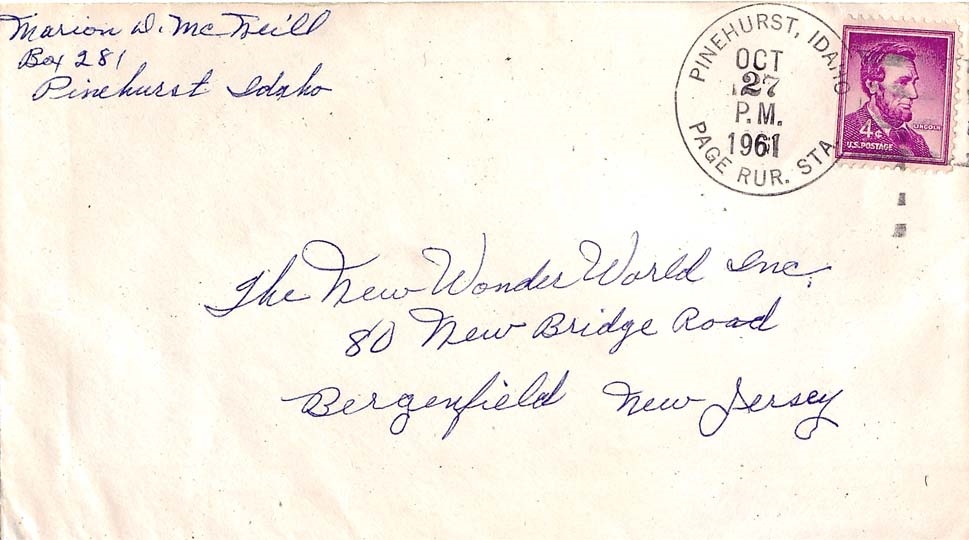 Marion D. McNeill
Box 281
Pinehurst Idaho
PINEHURST, IDAHO
OCT
27
P.M.
1961
PAGE RUR. STA.
LINCOLN
4¢
U.S. POSTAGE
The New Wonder World Inc.
80 New Bridge Road
Bergenfield New Jersey